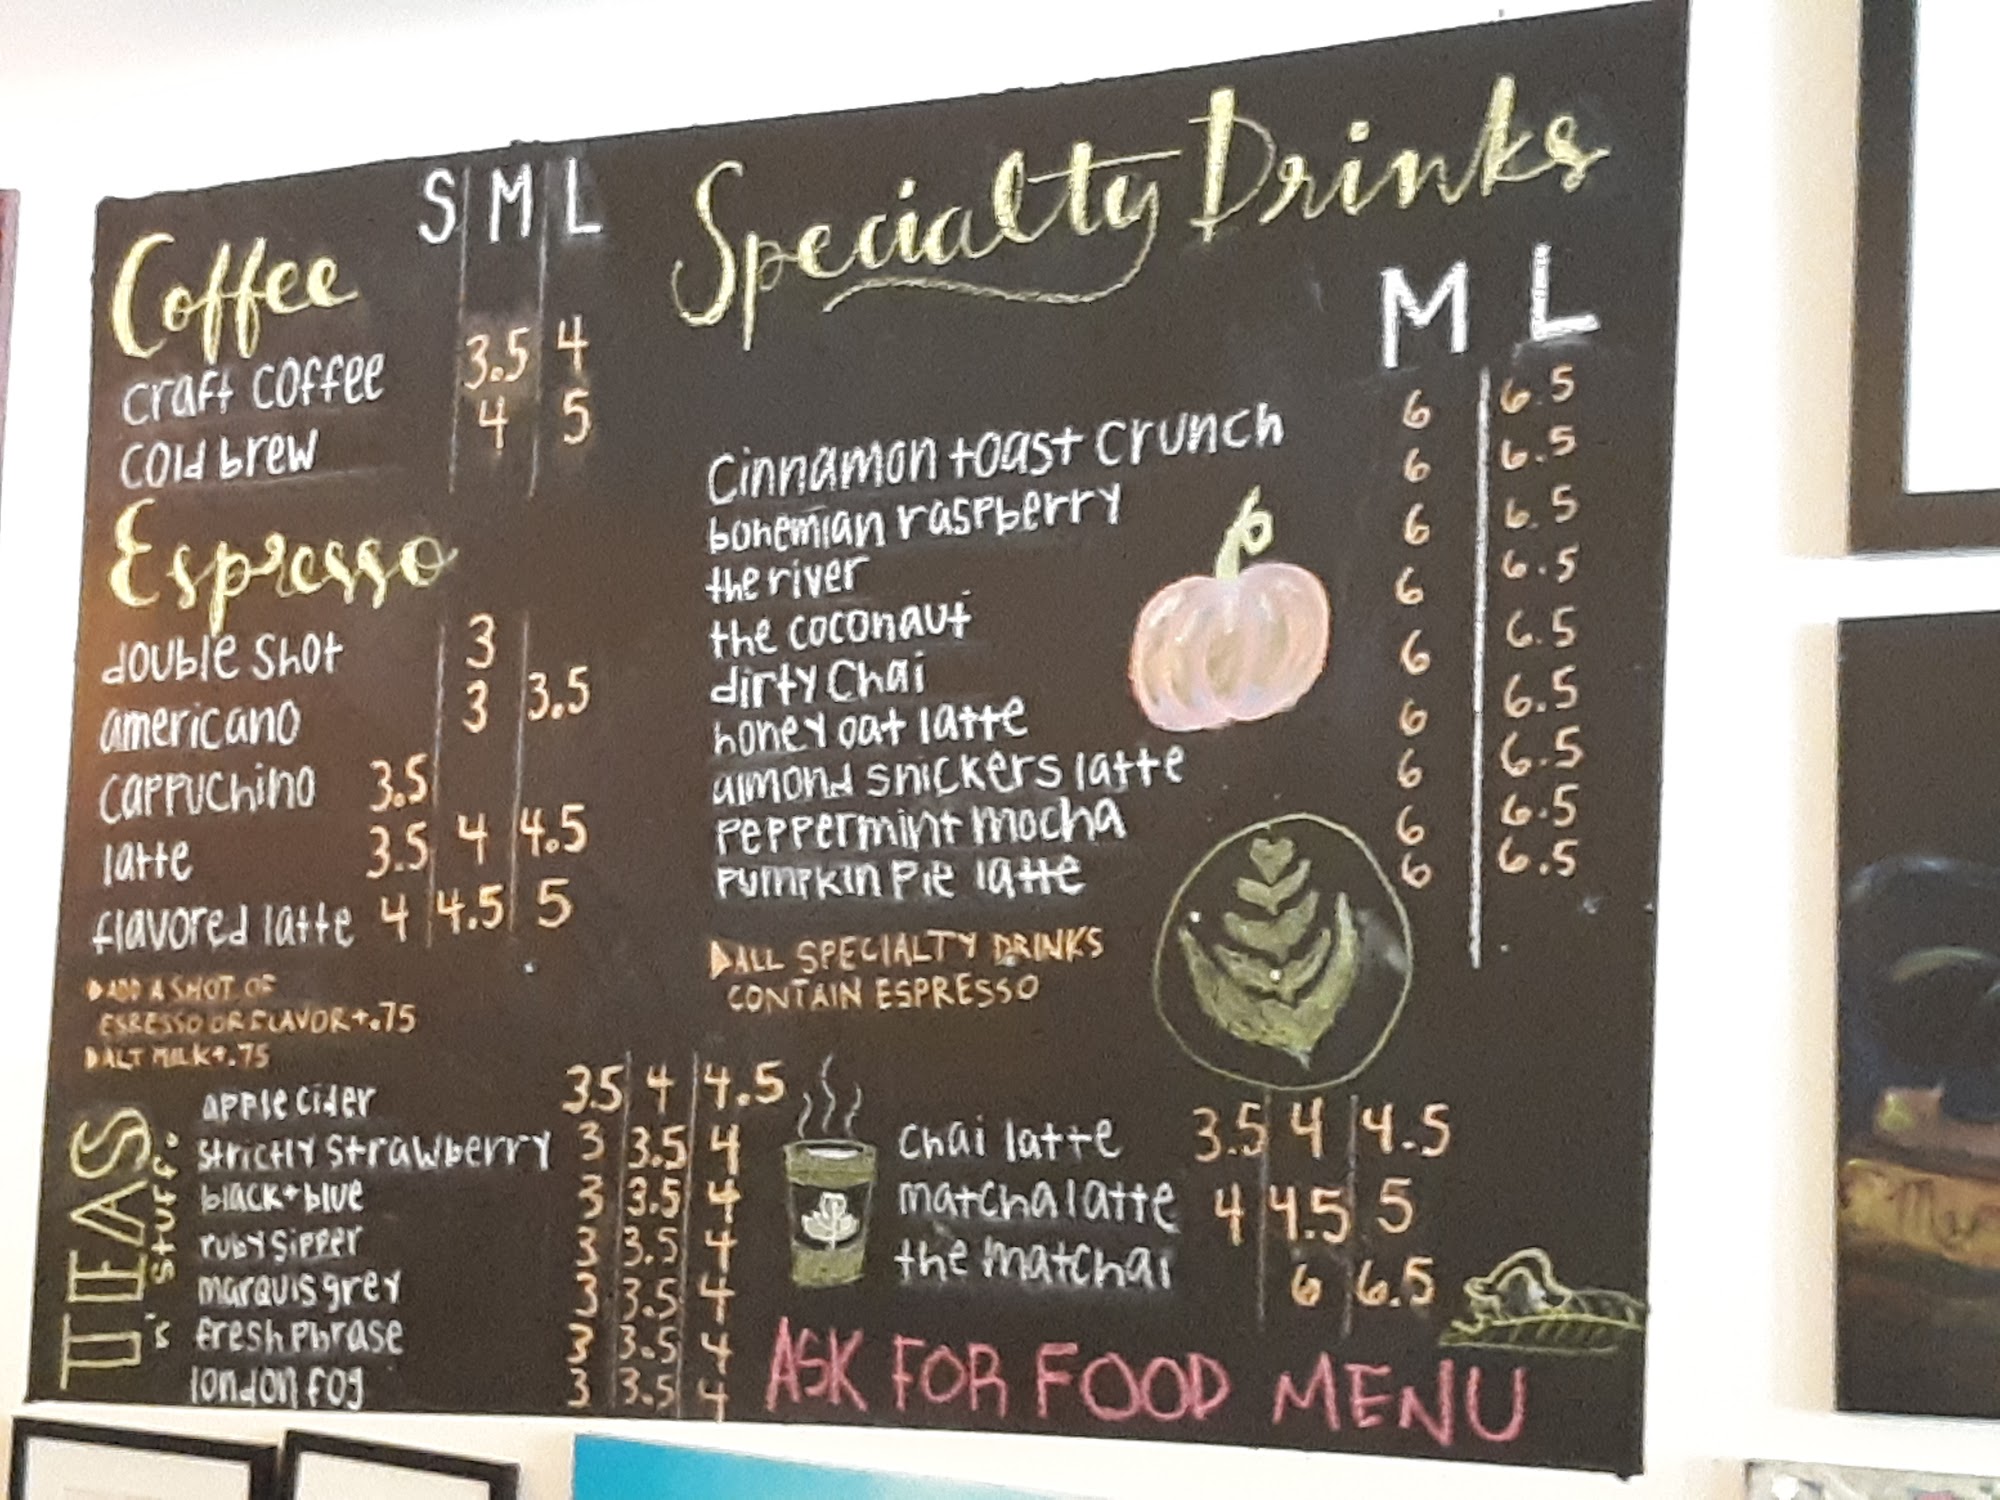 S M L
Coffee
craft coffee 3.5 4
cold brew 4 5
Espresso
double shot 3
americano 3 3.5
cappuchino 3.5
latte 3.5 4 4.5
flavored latte 4 4.5 5
ADD A SHOT OF
ESRESSO OR FLAVOR +.75
ALT MILK +.75
Specialty Drinks
M L
Cinnamon toast crunch 6 6.5
bohemian raspberry 6 6.5
the river 6 6.5
the coconaut 6 6.5
dirty Chai 6 6.5
honey oat latte 6 6.5
almond snickers latte 6 6.5
peppermint mocha 6 6.5
pumpkin pie latte 6 6.5
ALL SPECIALTY DRINKS
CONTAIN ESPRESSO
TEAS
n' stuff.
apple cider 3.5 4 4.5
strictly strawberry 3 3.5 4
black + blue 3 3.5 4
ruby sipper 3 3.5 4
marquis grey 3 3.5 4
fresh phrase 3 3.5 4
london fog 3 3.5 4
chai latte 3.5 4 4.5
matcha latte 4 4.5 5
the matchai 6 6.5
ASK FOR FOOD MENU